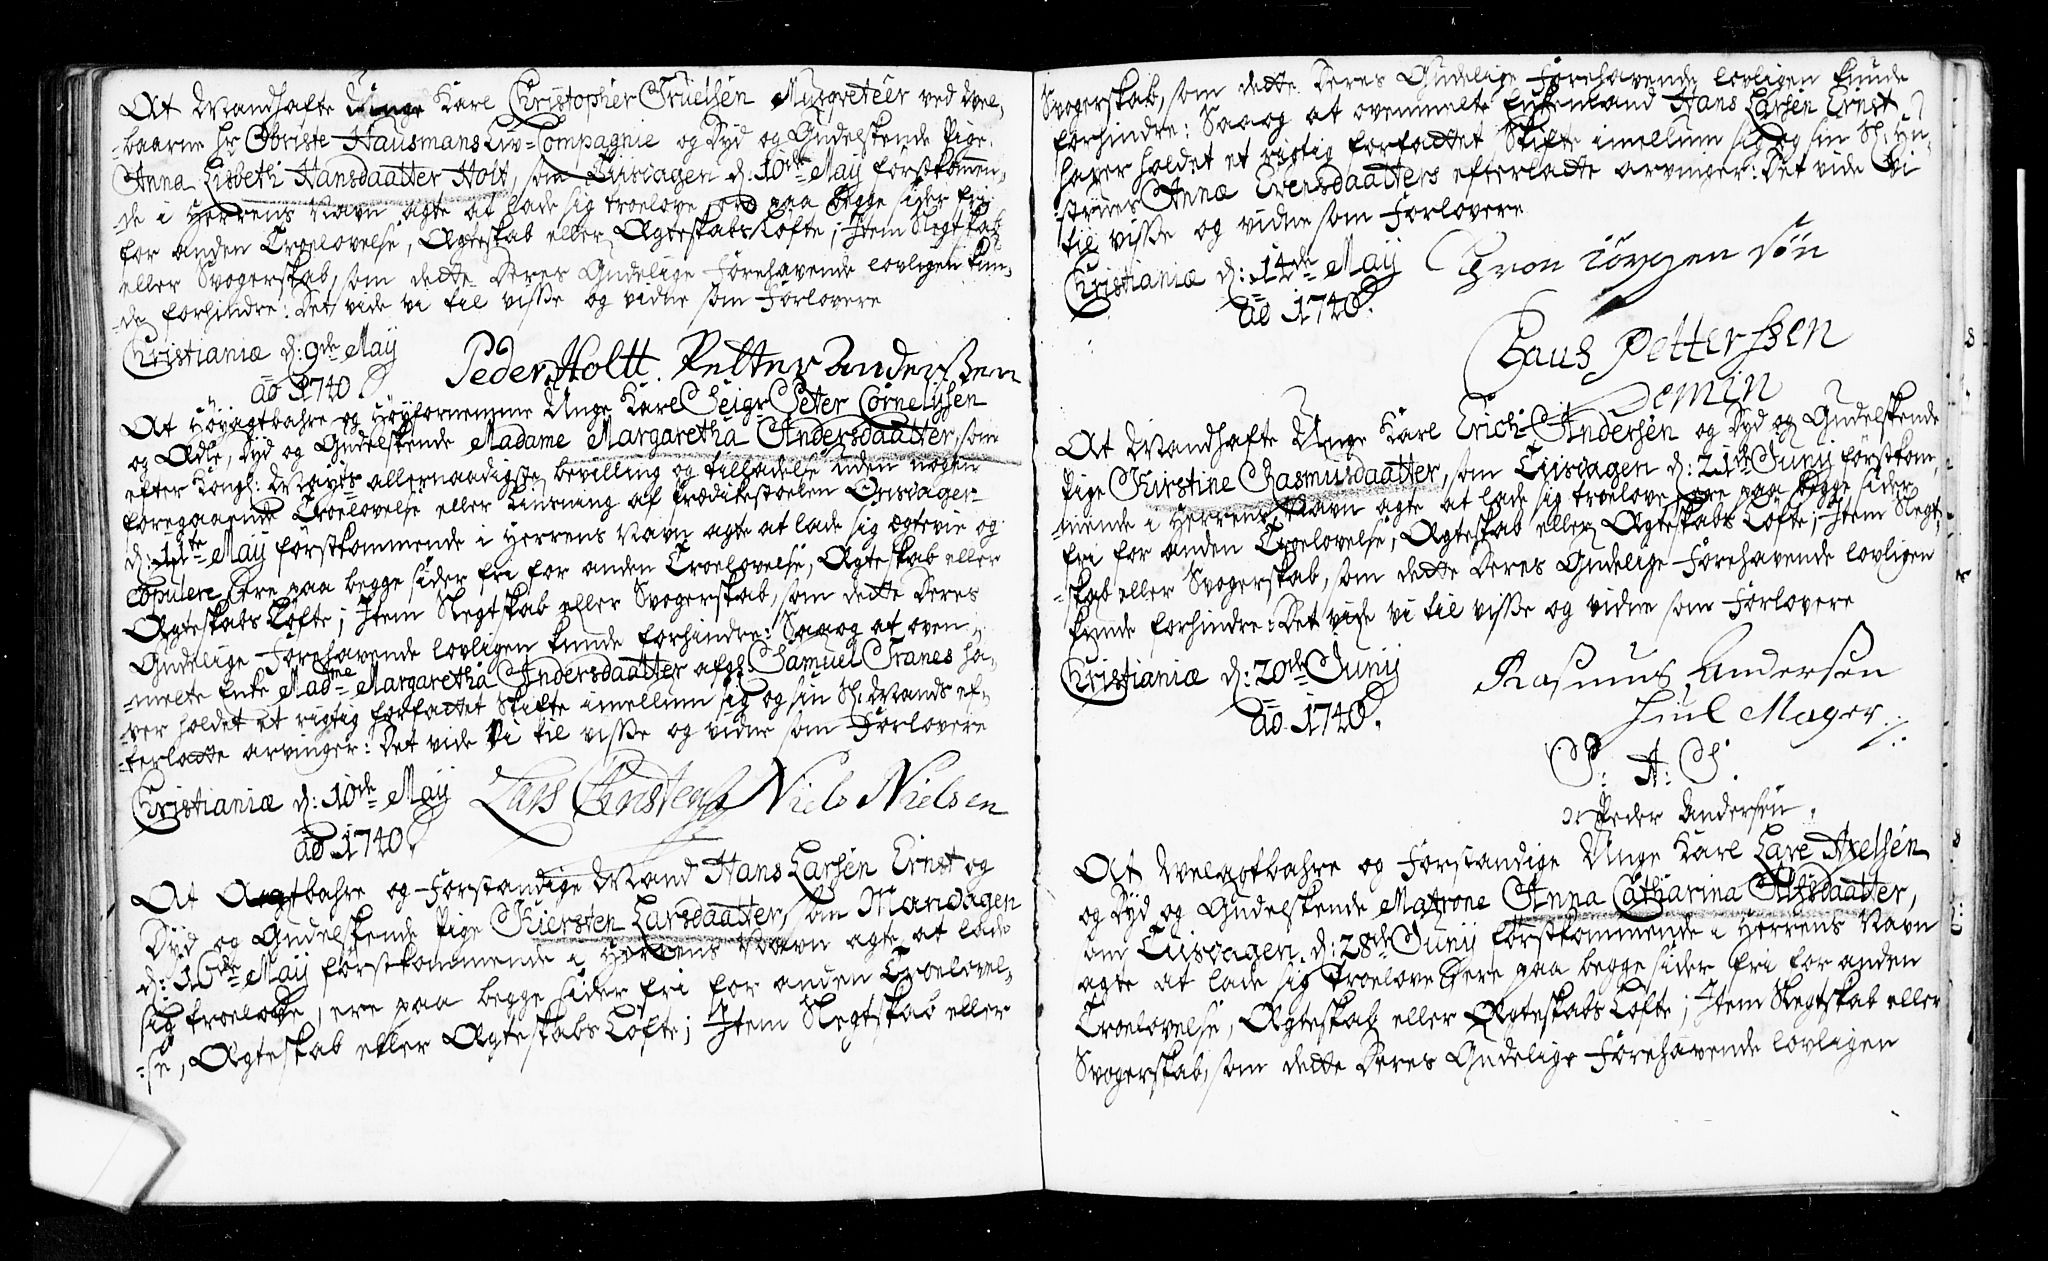 At Mandhafte Unge Karl Christopher Truelsen Musqveteer ved Vel-
-baarne Hr Obriste Hausmans Liv-Compagnie og Dyd og Gudelskende Pige
Anna Lisbeth Hansdaatter Holt, som Tiisdagen d: 10de Maij førstkommen-
-de i Herrens Navn agte at lade sig troelove, er paa begge sider fri
for anden Troelovelse, Ægteskab eller Ægteskabs Løfte; Item Slegtskab
eller Svogerskab, som dette Deres Gudelige Forehavende lovligen kun-
-de forhindre: Det vide vi til visse og vidne som Forlovere
Christianiæ d: 9de Maij
ao 1740
Peder Holtt. Petter Anderssen
At Høyagtbahre og Høyfornemme Unge Karl Seigr Peter Cornelissen
og Ædle, Dyd og Gudelskende Madame Margaretha Andersdaatter, som
efter Kongl: Mayts allernaadigste bevilling og tilladelse uden nogen
foregaaende Troelovelse eller Liusning af Prædikestoelen Onsdagen
d: 11te Maij førstkommende i Herrens Navn agte at lade sig ægtevie og
copulere, Ere paa begge sider fri for anden Troelovelse, Ægteskab eller
Ægteskabs Løfte; Item Slegtskab eller Svogerskab, som dette Deres
Gudelige Forehavende lovligen kunde forhindre: Saa og at oven-
-melte Enke Madme Margaretha Andersdaatter afg: Samuel Tranes ha-
-ver holdet et rigtig forfattet Skifte imellum sig og sin Sl: Mands ef-
-terladte arvinger: Det vide Vi til visse og vidne som Forlovere
Christianiæ d: 10de Maij
ao 1740
Lars Christens Niels Nielsen
At Agtbahre og Forstandige Mand Hans Larsen Ernst og
Dyd og Gudelskende Pige Kiersten Larsdaatter, som Mandagen
d: 16de Maij førstkommende i Herrens Navn agte at lade
sig troelove, ere paa begge sider fri for anden Troelovel-
-se, Ægteskab eller Ægteskabs Løfte; Item Slegtskab eller
Svogerskab, som dette Deres Gudelige Forehavende lovligen kunde
forhindre: Saa og at ovenmelte Enkemand Hans Larsen Ernst
haver holdet et rigtig forfattet Skifte imellum sig og sin Sl: Hu-
-struesAnnæ Evensdaatters efterladte arvinger: Det vide Vi
til visse og vidne som Forlovere
Christianiæ d: 14de Maij
ao 1740.
Tron iörgen sön
Claus Petterssen
Domin
At Mandhafte Unge Karl Erich Andersen og Dyd og Gudelskende
Pige Kirstine Rasmusdaatter, som Tiisdagen d: 21de Junij førstkom-
-mende i Herrens Navn agte at lade sig troelove, ere paa begge sider
fri for anden Troelovelse, Ægteskab eller Ægteskabs Løfte; Item Slegt-
-skab eller Svogerskab, som dette Deres Gudelige Forehavende lovligen
kunde forhindre: Det vide vi til visse og vidne som Forlovere
Christianiæ d: 20de Junij
ao 1740.
Rasmus Andersen
Juul Mager
P: A: S
Peder Andersen
At Velagtbahre og Forstandige Unge Karl Lare Axelsen
og Dyd og Gudelskende Matrone Anna Catharina Nilsdaatter,
som Tiisdagen d: 28de Junij førstkommende i Herrens Navn
agte at lade sig troelove Ere paa begge sider fri for anden
Troelovelse, Ægteskab eller Ægteskabs Løfte; Item Slegtskab eller
Svogerskab, som dette Deres Gudelige Forehavende lovligen